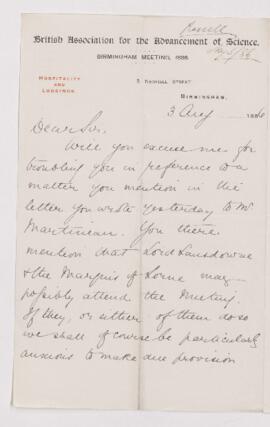 Russell
British Association for the Advancement of Science.
BIRMINGHAM MEETING, 1886.
HOSPITALITY
AND
LODGINGS.
BIRMINGHAM,
3 Aug 1886
Dear Sir,
Will you excuse me for
troubling you in reference to a
matter you mention in the
letter you wrote yesterday to Mr
Martineau. You there
mention that Lord Lansdowne
& the Marquis of Lorne may
possibly attend the Meeting.
If they, or either of them do so
we shall of course be particularly
anxious to make due provision